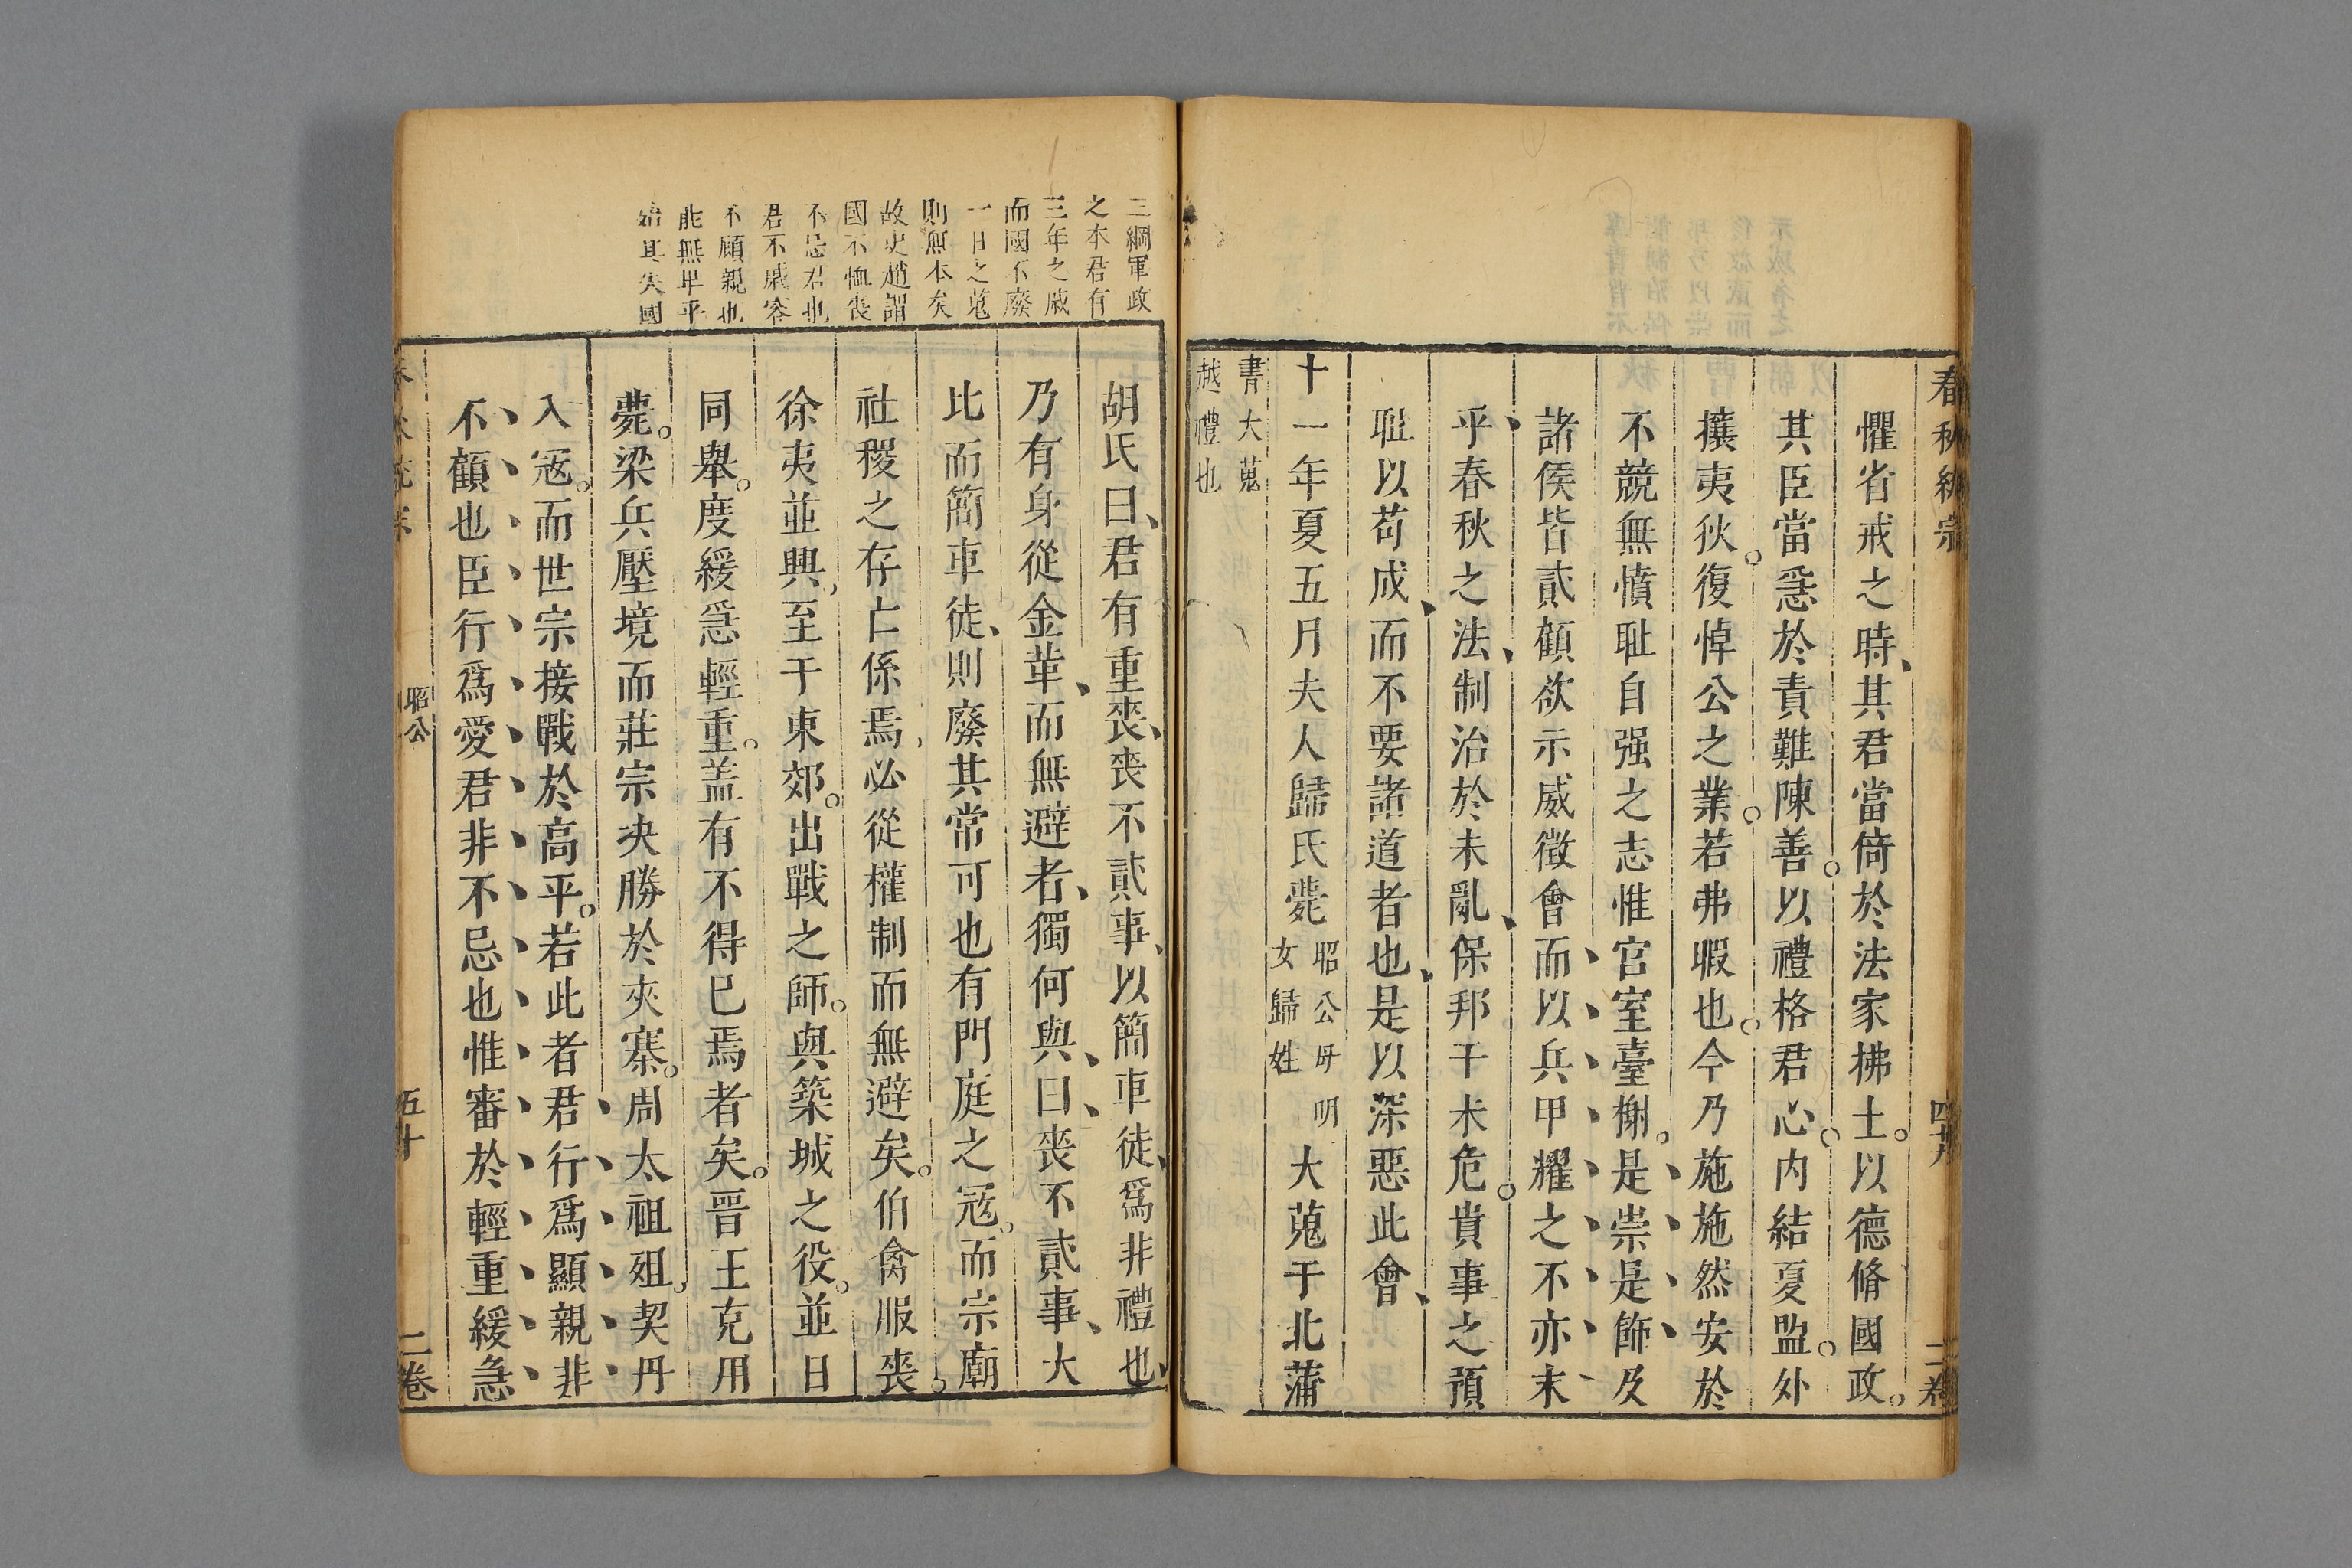 春秋統宗
四十九
二卷
懼省戒之時其君當倚於法家拂士以德脩國政
其臣當急於責難陳善以禮格君心内結夏盟外
攘夷狄復悼公之業若弗暇也今乃施施然安於
不競無憤耻自强之志惟宫室臺榭是崇是飾及
諸侯皆貳顧欲示威徵會而以兵甲耀之不亦末
乎春秋之法制治於未亂保邦于未危貴事之預
耻以苟成而不要諸道者也是以深惡此會
十一年夏五月夫人歸氏薨
昭公母明
女歸姓
大蒐于北蒲
書大蒐
越禮也
三綱軍政
之本君有
三年之慼
而國不廢
一日之蒐
則無本矣
故史趙謂
國不恤喪
不忌君也
君不慼容
不顧親也
能無卑乎
殆其失國
胡氏曰君有重喪喪不貳事以簡車徒爲非禮也
乃有身從金革而無避者獨何與曰喪不貳事大
比而簡車徒則廢其常可也有門庭之冦而宗廟
社稷之存亡係焉必從權制而無避矣伯禽服喪
徐夷並興至于東郊出戰之師與築城之役並日
同舉度緩急輕重盖有不得已焉者矣晋王克用
薨梁兵壓境而莊宗决勝於夾寨周太祖殂契丹
入冦而世宗接戰於高平若此者君行爲顯親非
不顧也臣行爲愛君非不忌也惟審於輕重緩急
昭公
五十
二卷